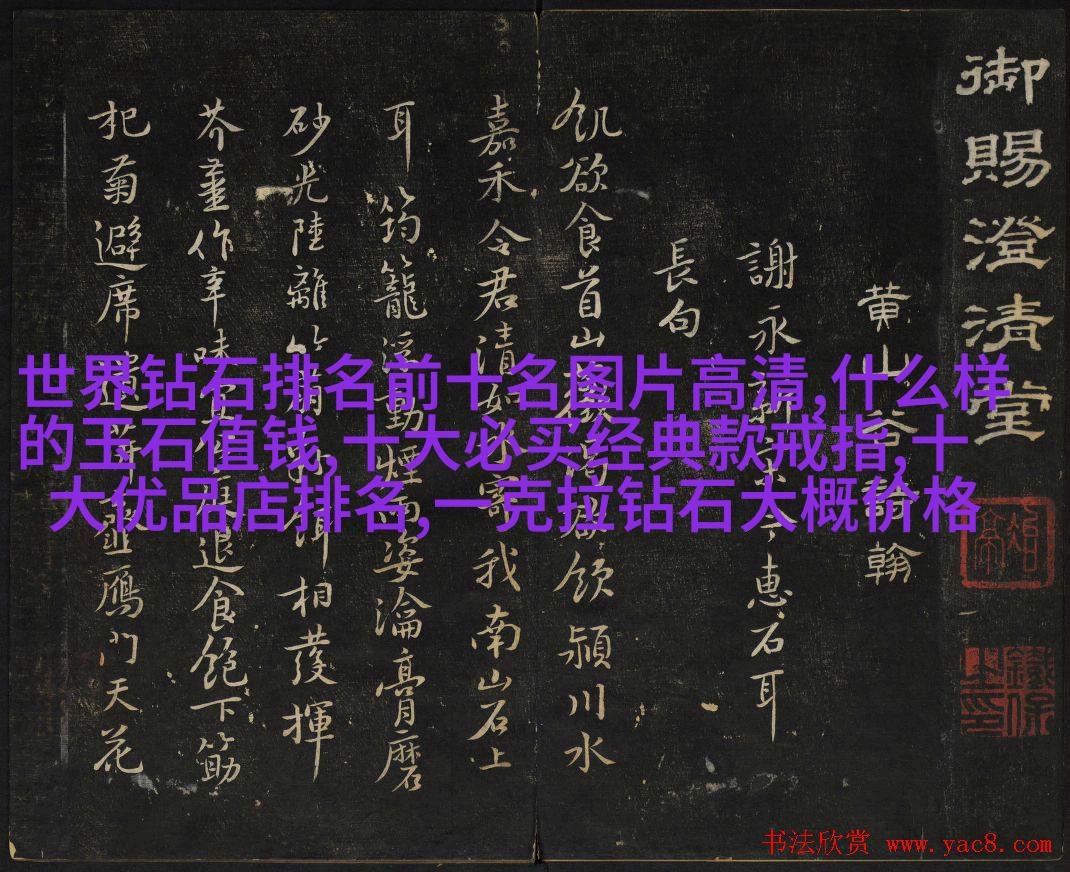 御賜澄清堂
黄山谷詩翰
謝永新令惠石耳
長句
飢欲食首山薇渴欲飲潁川水
嘉禾令君清如冰寄我南山石上
耳筠籠浮動煙雨姿瀹膏磨
砂光陸離竹萌粉餌相發揮
芥薑作辛味退食飽下筯
杞菊避席遺萍虀鴈門天花
世界钻石排名前十名图片高清,什么样
的玉石值钱,十大必买经典款戒指,十
大优品店排名,一克拉钻石大概价格
书法欣赏 www.yac8.com